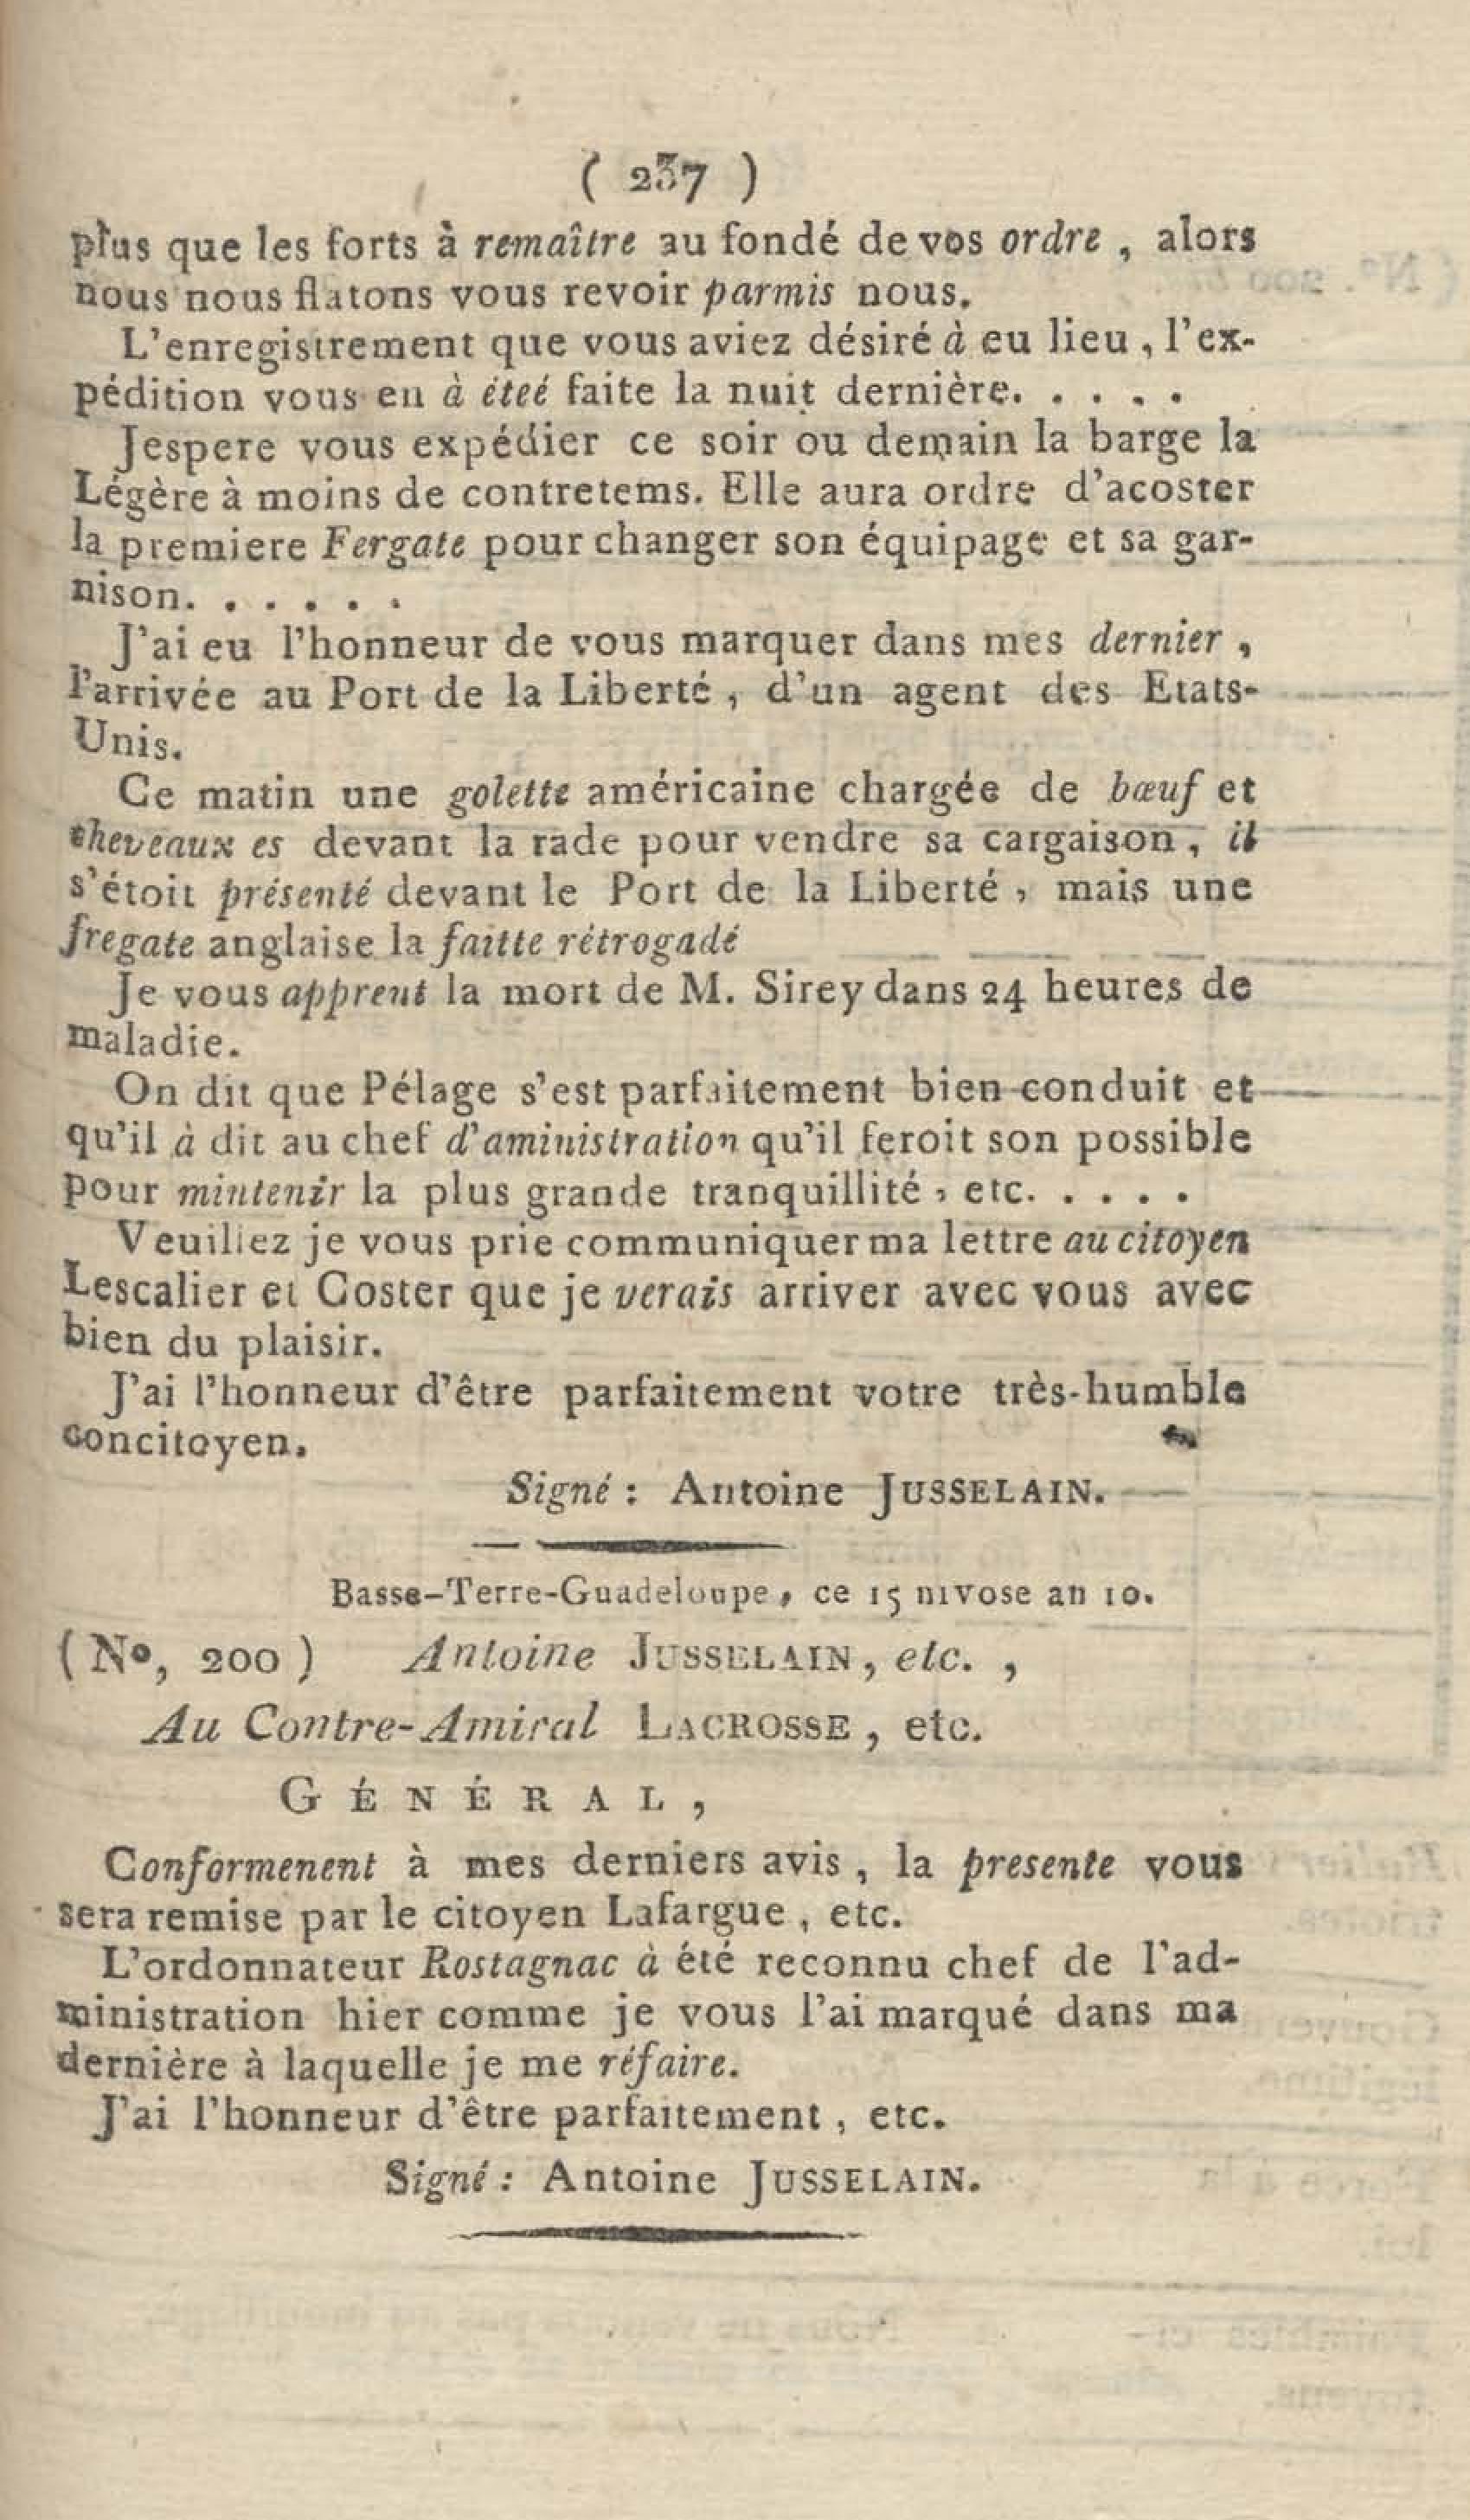 ( 237 )
plus que les forts à remaître au fondé de vos ordre , alors
nous nous flatons vous revoir parmis nous.
L'enregistrement que vous aviez désiré à eu lieu , l'ex-
pédition vous en à éteé faite la nuit dernière. . . . .
Jespere vous expédier ce soir ou demain la barge la
Légère à moins de contretems. Elle aura ordre d'acoster
la premiere Fergate pour changer son équipage et sa gar-
nison. . . . . .
J'ai eu l'honneur de vous marquer dans mes dernier ,
l'arrivée au Port de la Liberté , d'un agent des Etats-
Unis.
Ce matin une golette américaine chargée de bœuf et
cheveaux es devant la rade pour vendre sa cargaison , il
s'étoit présenté devant le Port de la Liberté , mais une
fregate anglaise la faitte rétrogadé
Je vous apprent la mort de M. Sirey dans 24 heures de
maladie.
On dit que Pélage s'est parfaitement bien conduit et
qu'il à dit au chef d'aministration qu'il feroit son possible
pour mintenir la plus grande tranquillité , etc. . . . .
Veuillez je vous prie communiquer ma lettre au citoyen
Lescalier et Coster que je verais arriver avec vous avec
bien du plaisir.
J'ai l'honneur d'être parfaitement votre très-humble
concitoyen.
Signé : Antoine JUSSELAIN.
Basse-Terre-Guadeloupe , ce 15 nivose an 10.
( No, 200 ) Antoine JUSSELAIN , etc. ,
Au Contre-Amiral LACROSSE , etc.
GÉNÉRAL,
Conformenent à mes derniers avis , la presente vous
sera remise par le citoyen Lafargue , etc.
L'ordonnateur Rostagnac à été reconnu chef de l'ad-
ministration hier comme je vous l'ai marqué dans ma
dernière à laquelle je me réfaire.
J'ai l'honneur d'être parfaitement , etc.
Signé : Antoine JUSSELAIN.